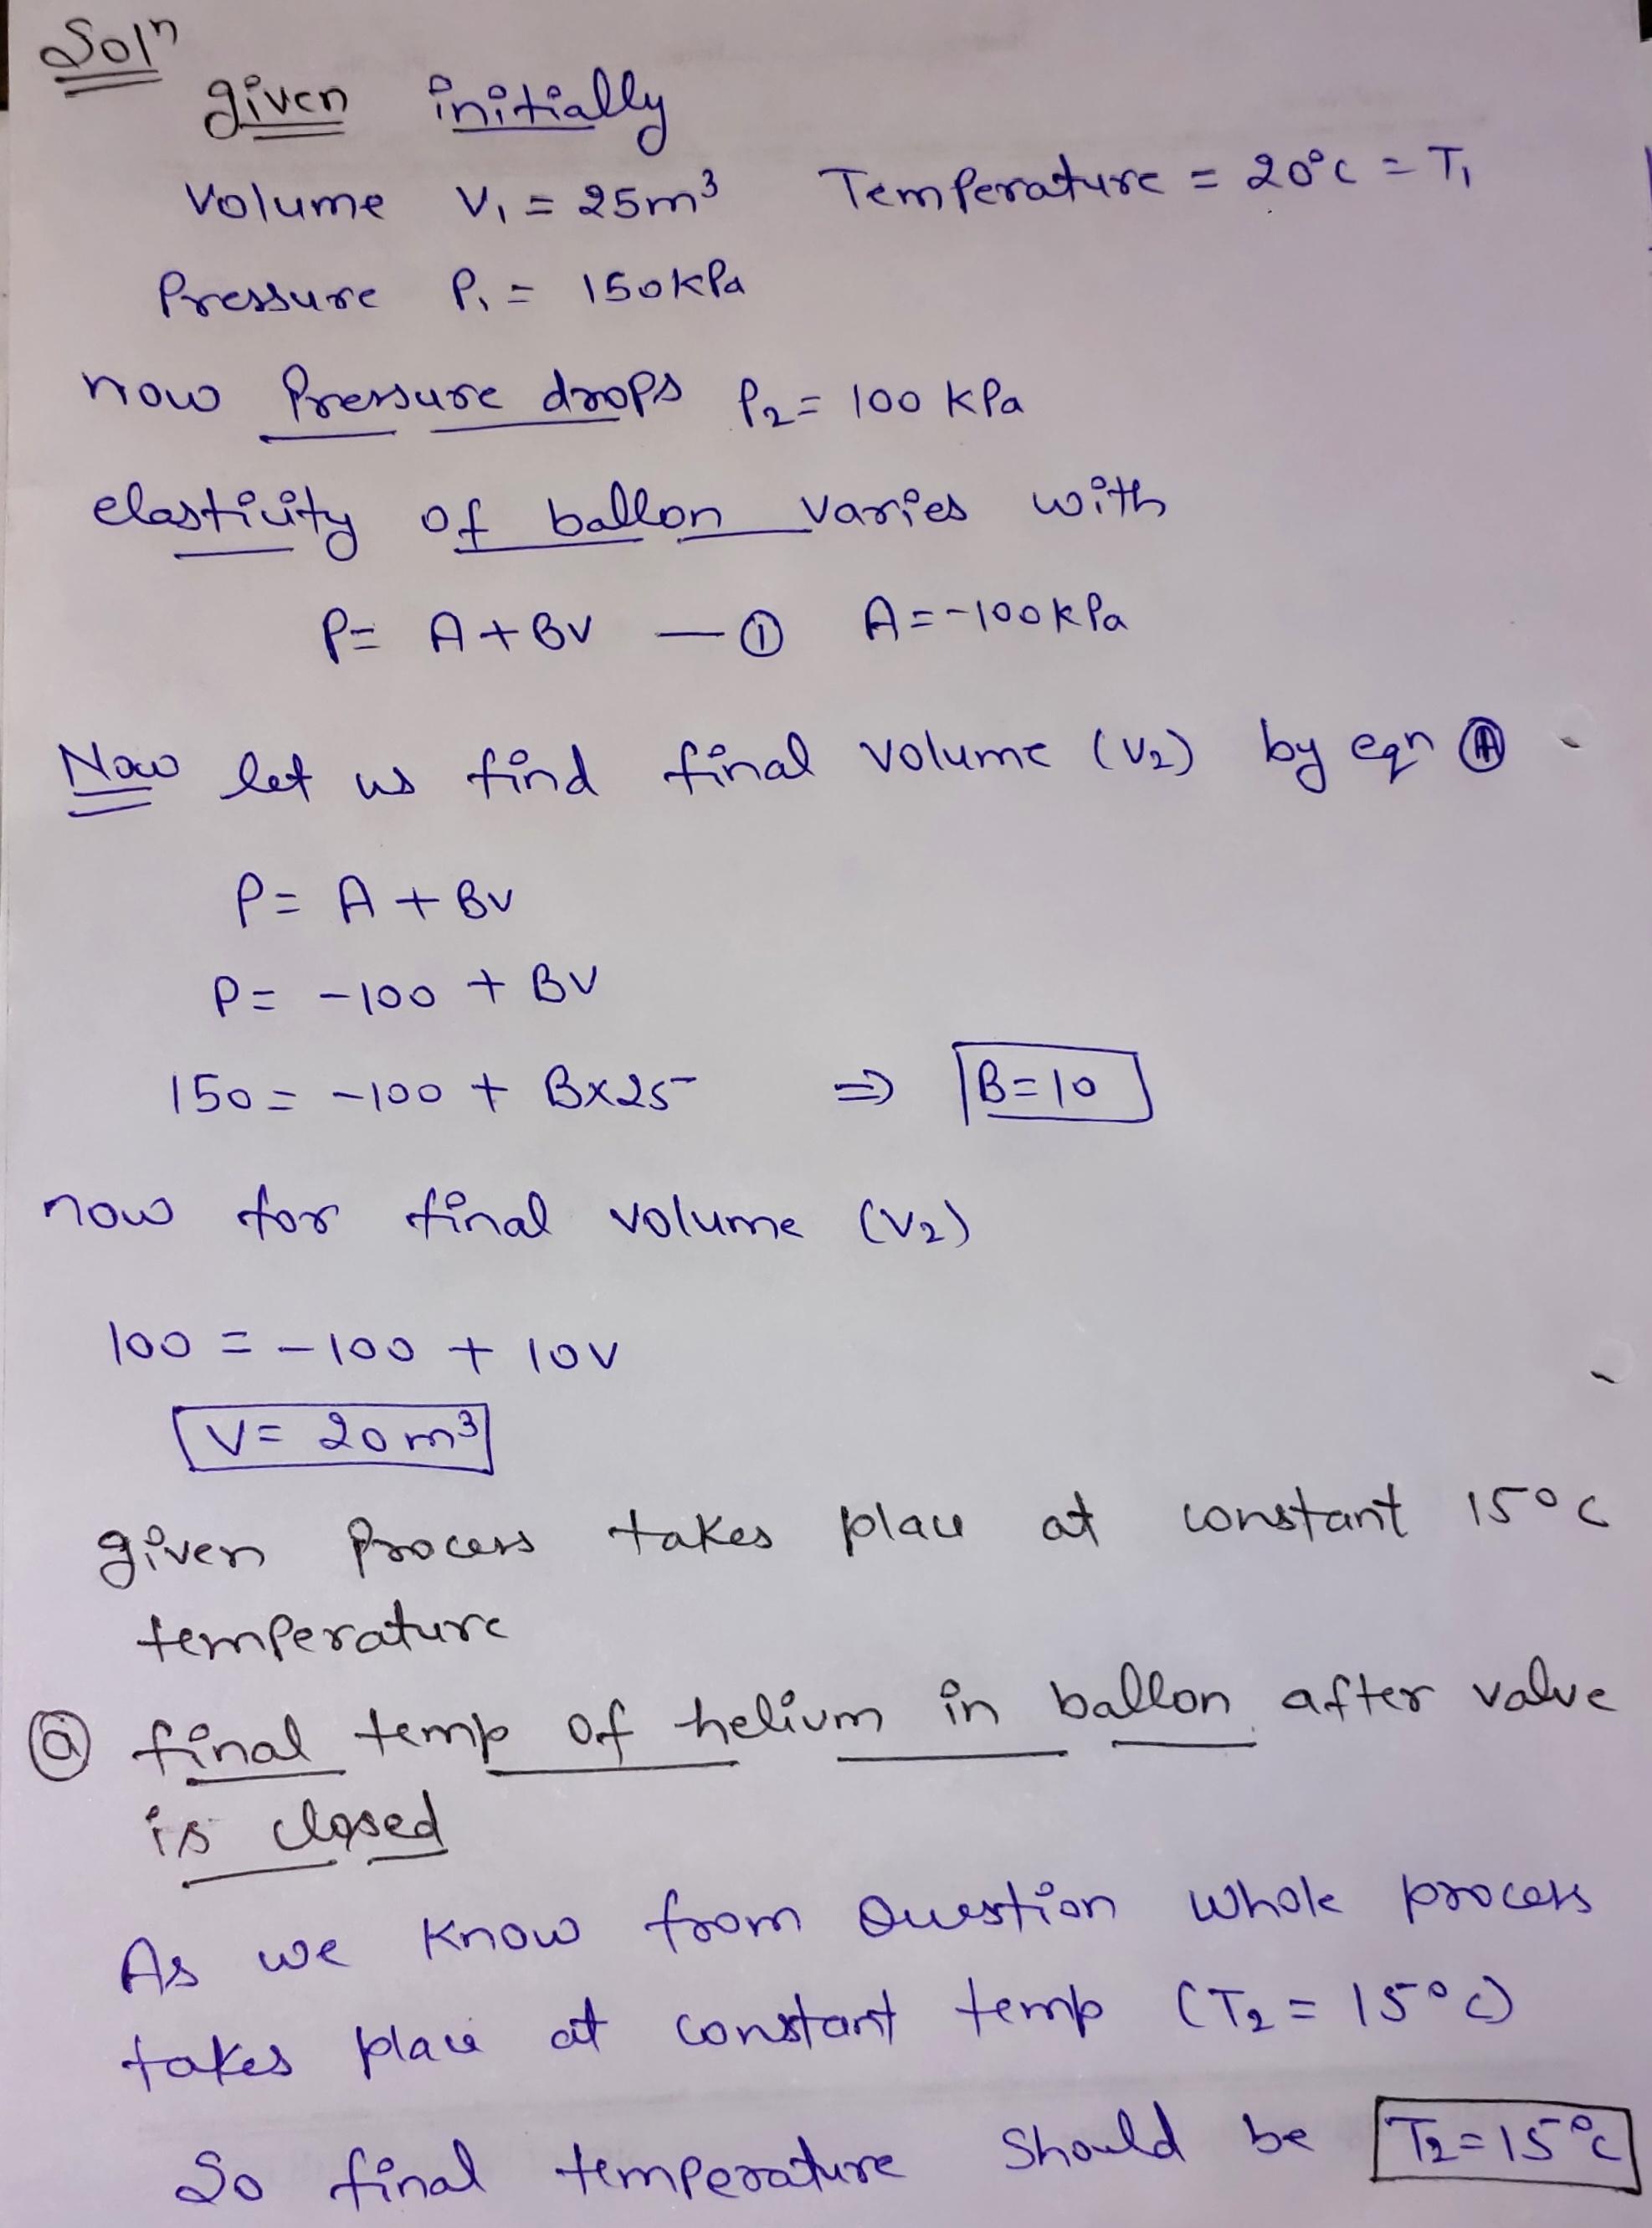 Solⁿ
given initially
Volume V₁ = 25m³ Temperature = 20°c = T₁
Pressure P₁ = 150kPa
now Pressure drops P₂ = 100 kPa
elasticity of ballon varies with
P = A + BV — ① A = -100kPa
Now let us find final volume (V₂) by eqn Ⓐ
P = A + BV
P = -100 + BV
150 = -100 + B×25 ⇒ B=10
now for final volume (V₂)
100 = -100 + 10V
V = 20m³
given Process takes place at constant 15°c
temperature
ⓐ final temp of helium in ballon after valve
is closed
As we know from Question whole process
takes place at constant temp (T₂ = 15°c)
So final temperature should be T₂ = 15°c